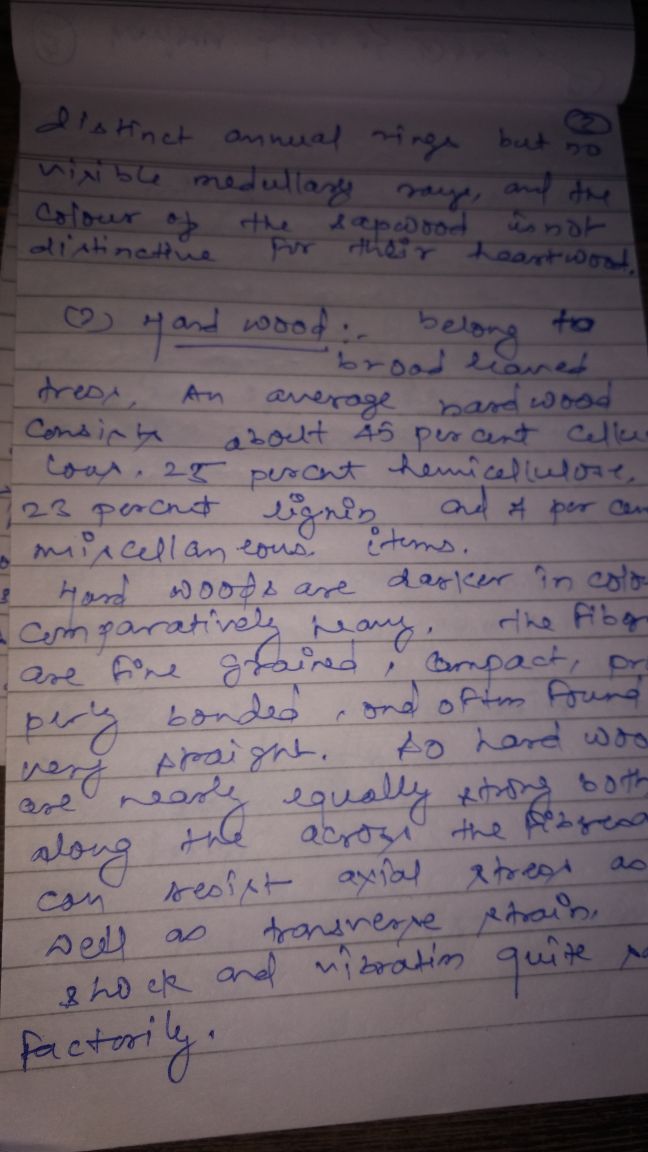 2
distinct annual rings but no
visible medullary rays, and the
colour of the sapwood is not
distinctive for their heartwood.
(2) Hard wood :- belong to
broad leaved
trees, An average hardwood
consists about 45 percent cellu
lous. 25 percent hemicellulose,
23 percent lignin and 7 per cen
miscellaneous items.
Hard woods are darker in colo
comparatively heavy. The fiber
are fine grained, compact, pro
perly bonded, and often found
very straight. So hard woo
are nearly equally strong both
along the across the fibres
can resist axial stress as
well as transverse strain,
shock and vibration quite
factorily.